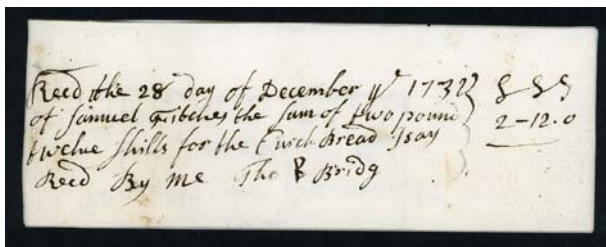 Recd the 28 day of December ye 1732
of Samuel Fitches the sum of two pound
2-12-0
twelve shills for the Curch Bread I say
Recd By me Tho Bridg